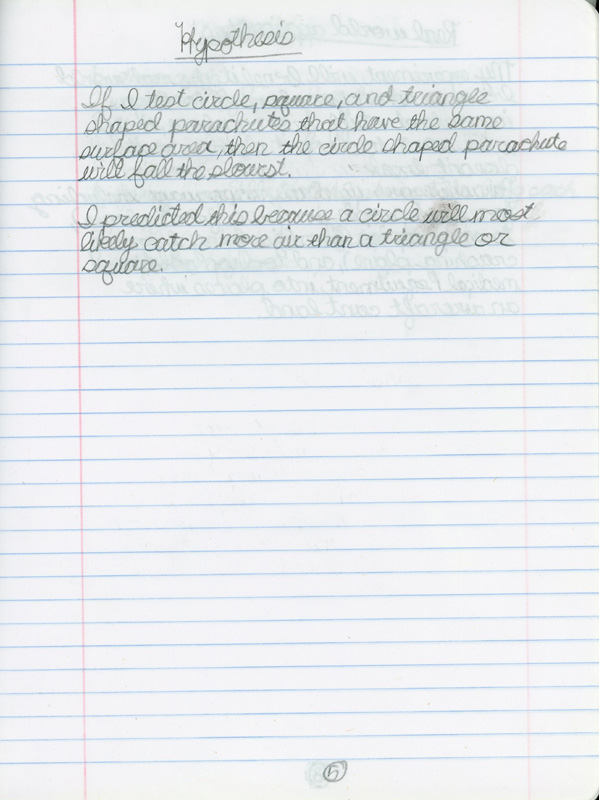 Hypothesis
If I test circle, square, and triangle
shaped parachutes that have the same
surface area, then the circle shaped parachute
will fall the slowest.
I predicted this because a circle will most
likely catch more air than a triangle or
square.
5